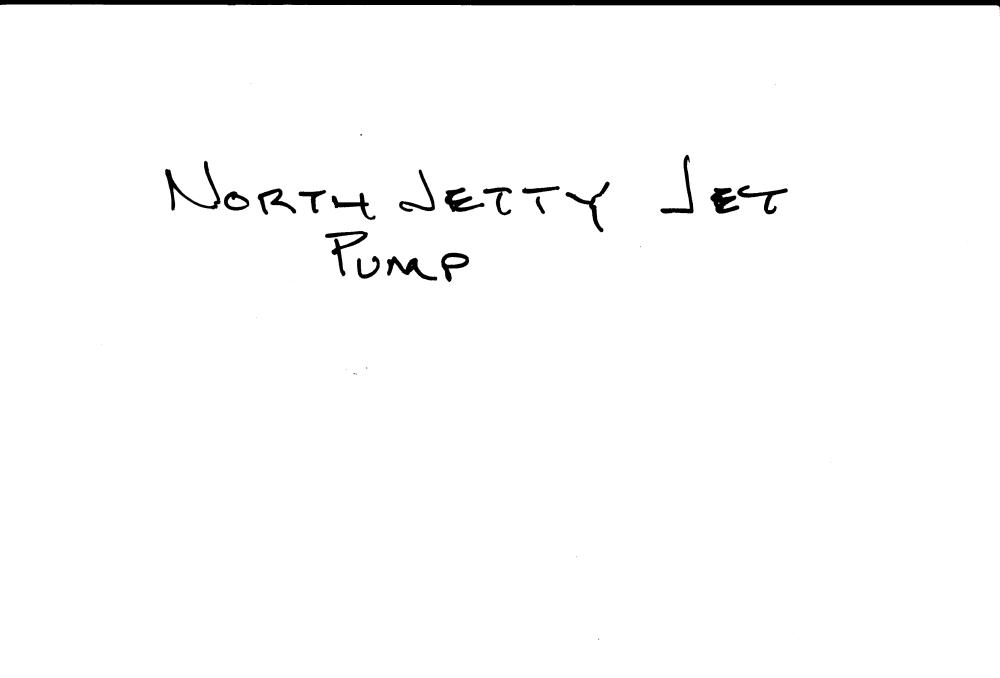 NORTH JETTY JET
PUMP